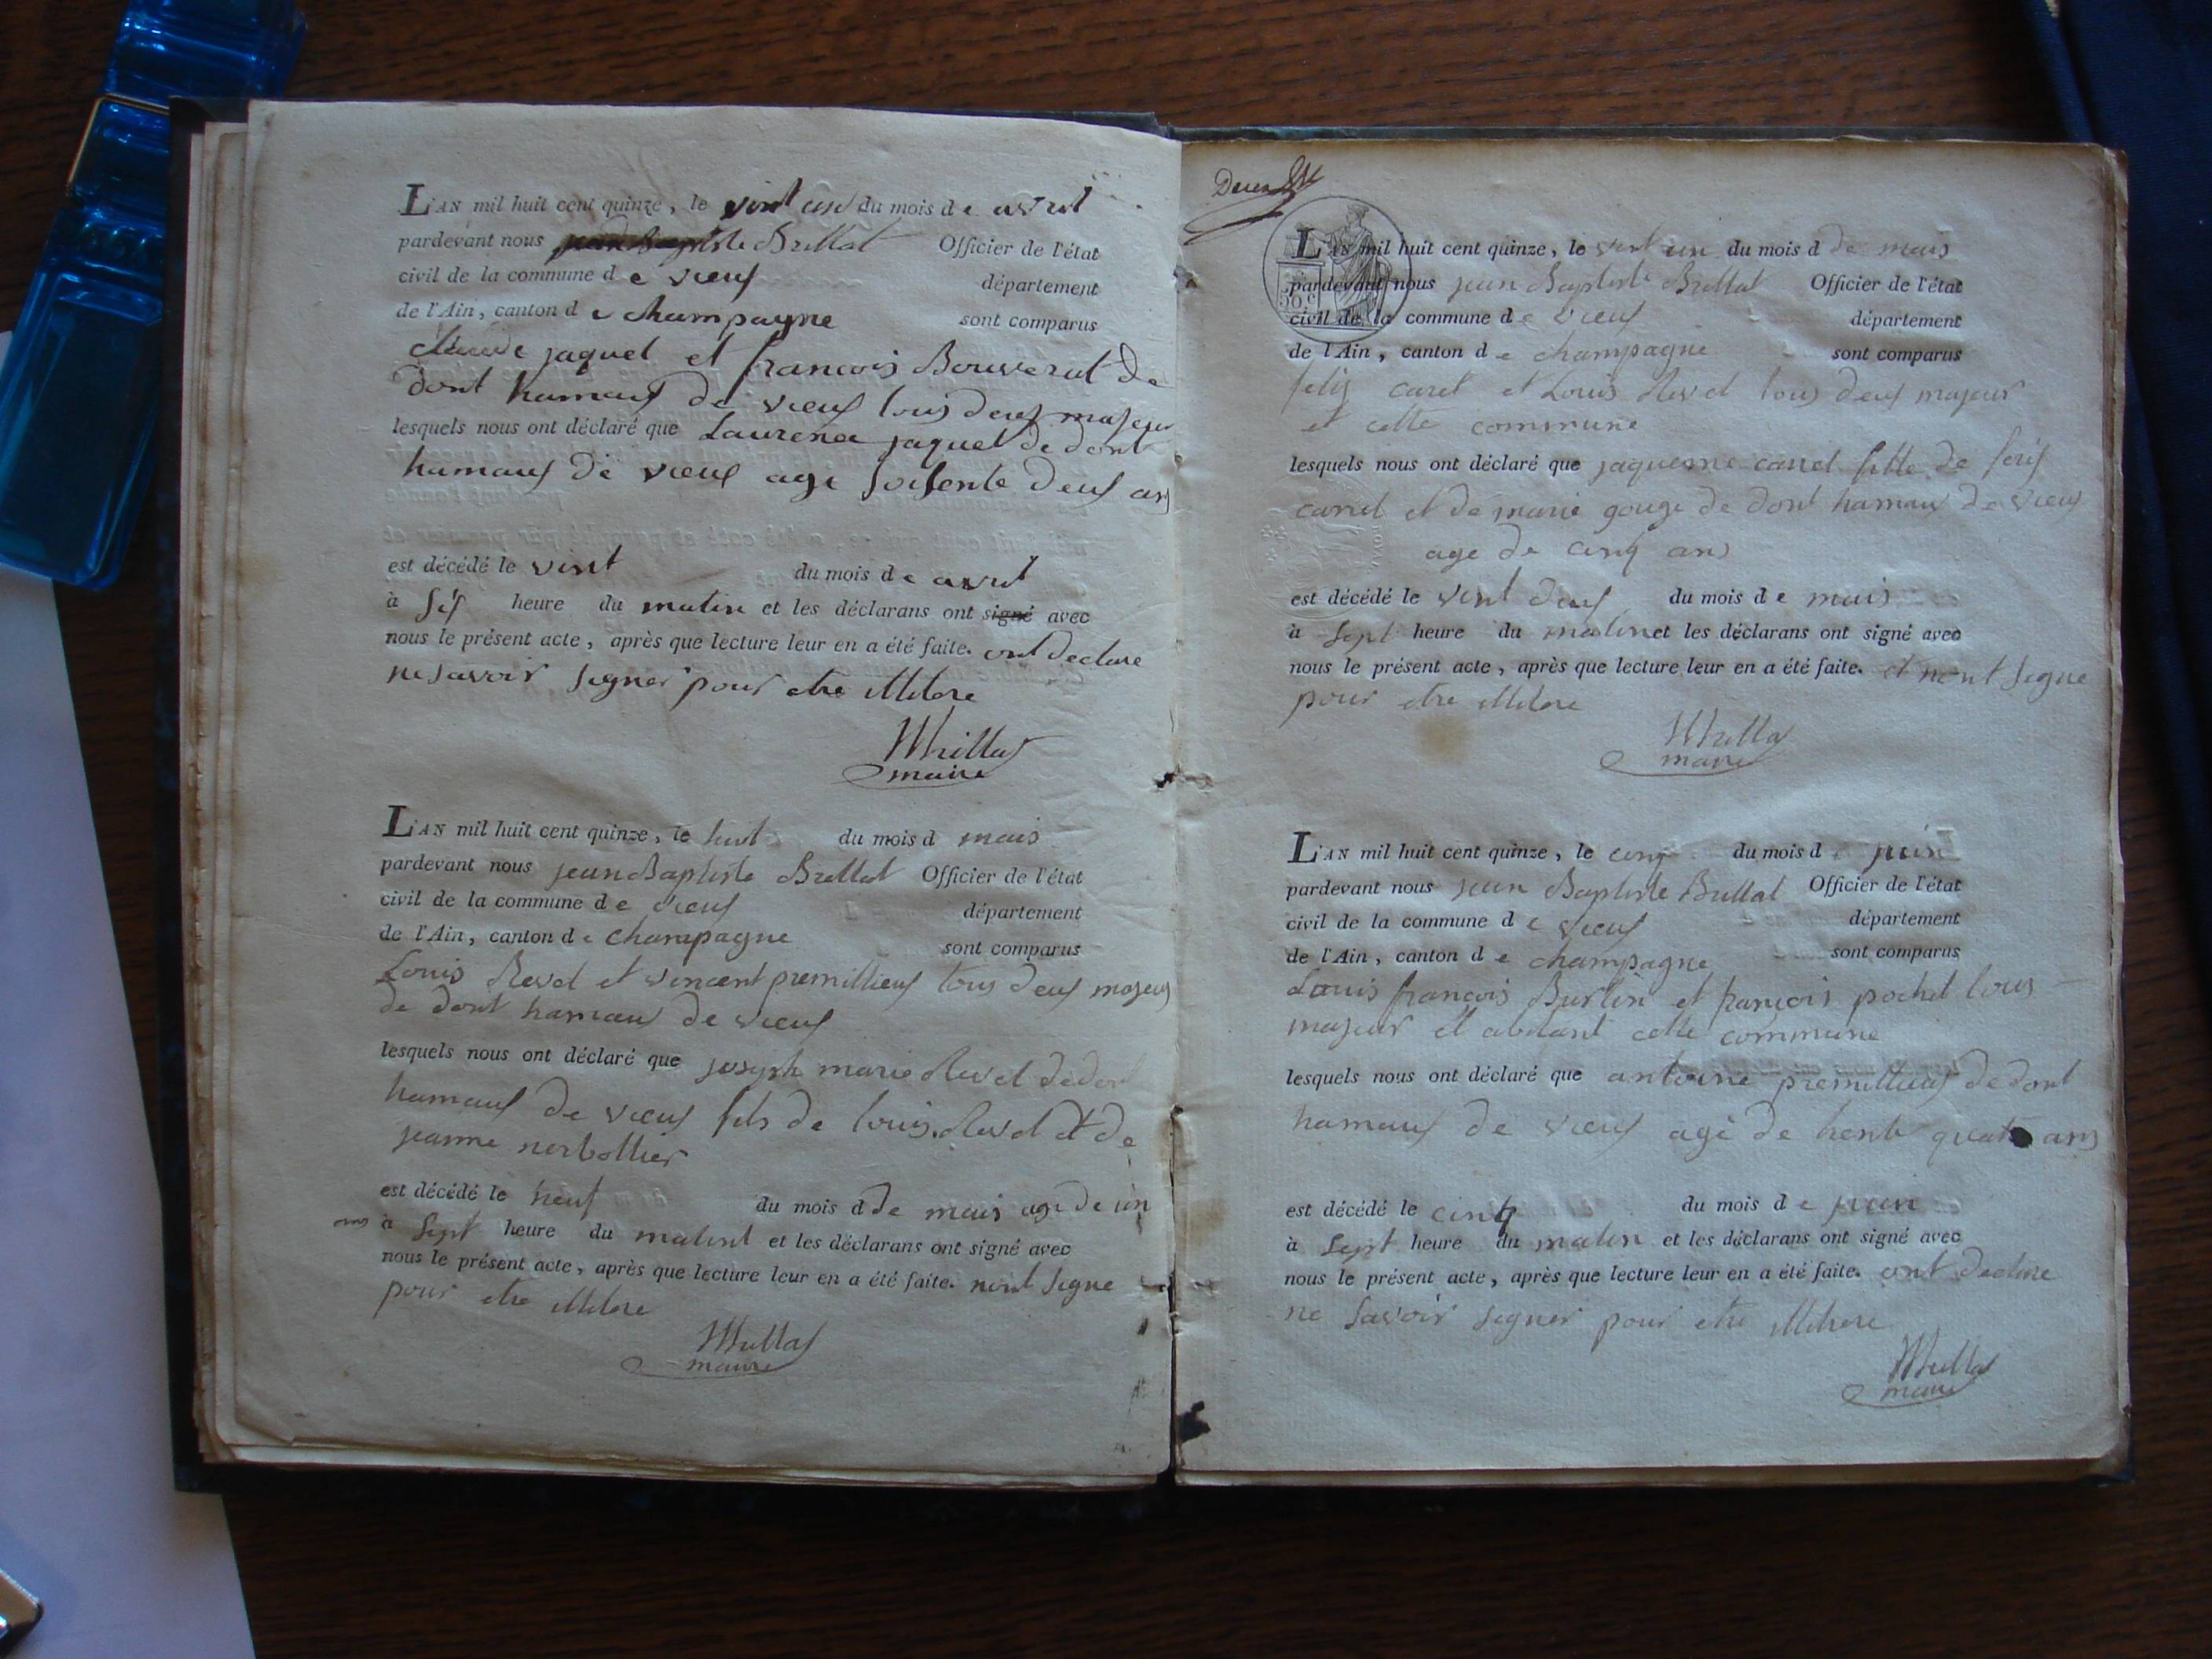 L'AN mil huit cent quinze, le vint un du mois d e avril
pardevant nous jean Baptiste Brillat Officier de l'état
civil de la commune d e vieux département
de l'Ain, canton d e champagne sont comparus
claude jaquet et francois Bouverat de
dont hamaux de vieux tous deux majeur
lesquels nous ont déclaré que Laurence jaquet de dont
hamaux de vieux age soisente deux ans
est décédé le vint du mois d e avril
à six heure du matin et les déclarans ont signé avec
nous le présent acte, après que lecture leur en a été faite. ont declare
ne savoir signer pour etre illitere
Brillat
maire
L'AN mil huit cent quinze, le huit du mois d mais
pardevant nous jean Baptiste Brillat Officier de l'état
civil de la commune d e vieux département
de l'Ain, canton d e champagne sont comparus
Louis Revel et vincent premillieux tous deux majeux
de dont hamaux de vieux
lesquels nous ont déclaré que joseph marie Revel de dont
hamaux de vieux fils de louis Revel et de
jeanne
est décédé le neuf du mois d de mais age de un
ans à sept heure du matint et les déclarans ont signé avec
nous le présent acte, après que lecture leur en a été faite. nont signe
pour etre illitere
Brillat
maire
50 c
L'AN mil huit cent quinze, le vint un du mois d de mais
pardevant nous jean Baptiste Brillat Officier de l'état
civil de la commune d e vieux département
de l'Ain, canton d e champagne sont comparus
felix caret et Louis Revel tous deux majeur
et cette commune
lesquels nous ont déclaré que jaqueme caret fille de felix
caret et de marie gouge de dont hamaux de vieux
age de cinq ans
est décédé le vint deux du mois d e mais
à sept heure du matin et les déclarans ont signé avec
nous le présent acte, après que lecture leur en a été faite. et nont signe
pour etre illitere
Brillat
maire
L'AN mil huit cent quinze, le cinq du mois d e juin
pardevant nous jean Baptiste Brillat Officier de l'état
civil de la commune d e vieux département
de l'Ain, canton d e champagne sont comparus
Louis francois Burtin et francois pochet tous
majeur et abitant cette commune
lesquels nous ont déclaré que antoine premillieux de dont
hamaux de vieux agé de trente quatre ans
est décédé le cinq du mois d e juin
à sept heure du matin et les déclarans ont signé avec
nous le présent acte, après que lecture leur en a été faite. ont declare
ne savoir signer pour etre illitere
Brillat
maire